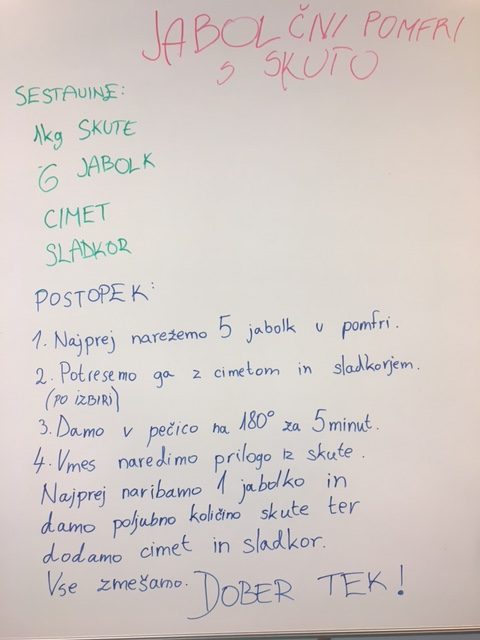 JABOLČNI POMFRI
S SKUTO
SESTAVINE:
1kg SKUTE
6 JABOLK
CIMET
SLADKOR
POSTOPEK:
1. Najprej narežemo 5 jabolk v pomfri.
2. Potresemo ga z cimetom in sladkorjem.
(PO IZBIRI)
3. Damo v pečico na 180° za 5 minut.
4. Vmes naredimo prilogo iz skute.
Najprej naribamo 1 jabolko in
damo poljubno količino skute ter
dodamo cimet in sladkor.
Vse zmešamo. DOBER TEK!